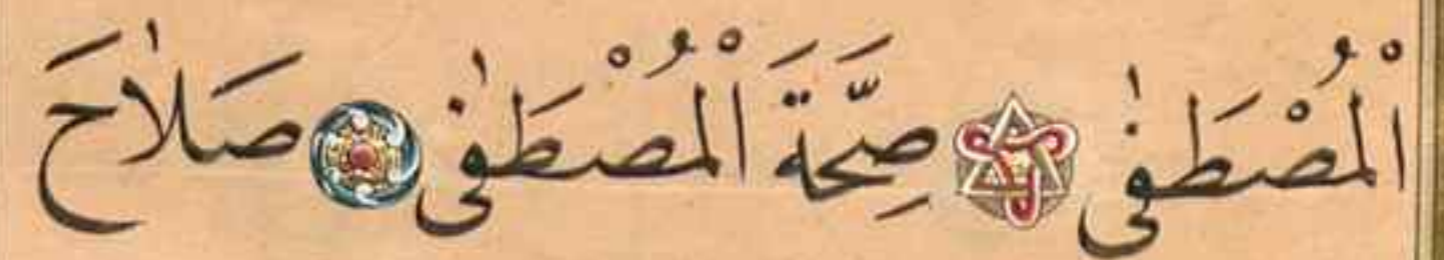 الْمُصْطَفٰى صِحَّةَ الْمُصْطَفٰى صَلَاحَ